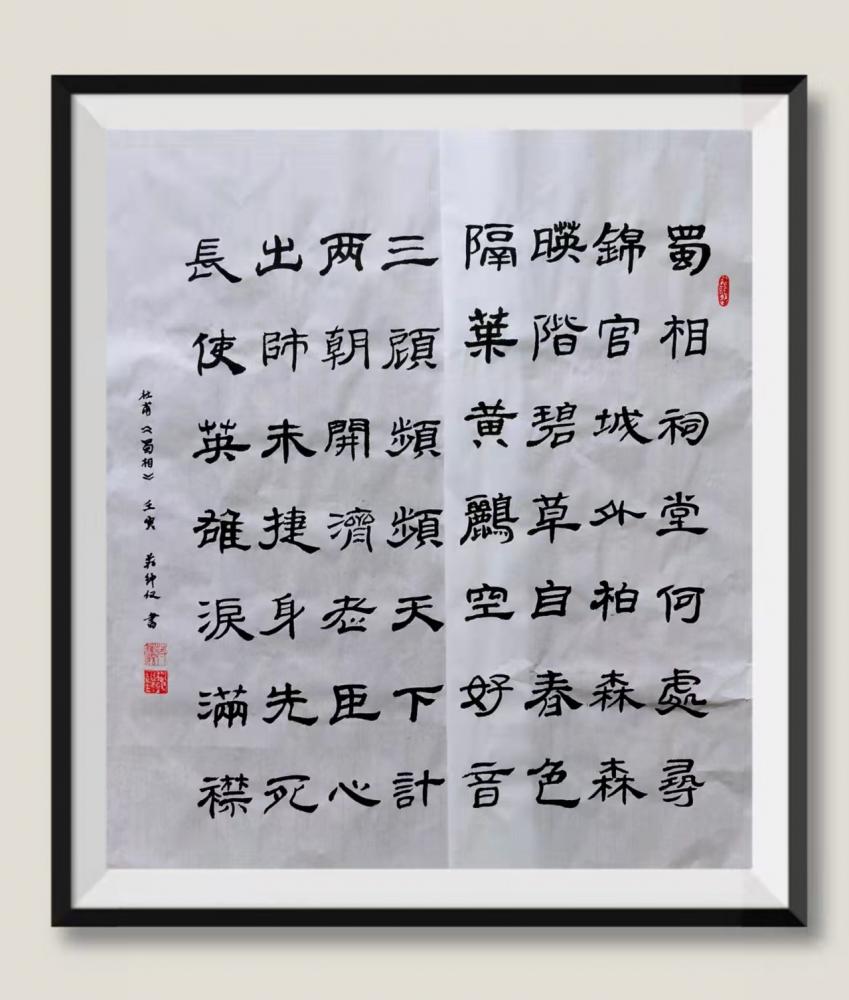 蜀相祠堂何處尋
錦官城外柏森森
暎階碧草自春色
隔葉黄鸝空好音
三顧頻頻天下計
两朝開濟老臣心
出師未捷身先死
長使英雄淚滿襟
杜甫《蜀相》 壬寅 書